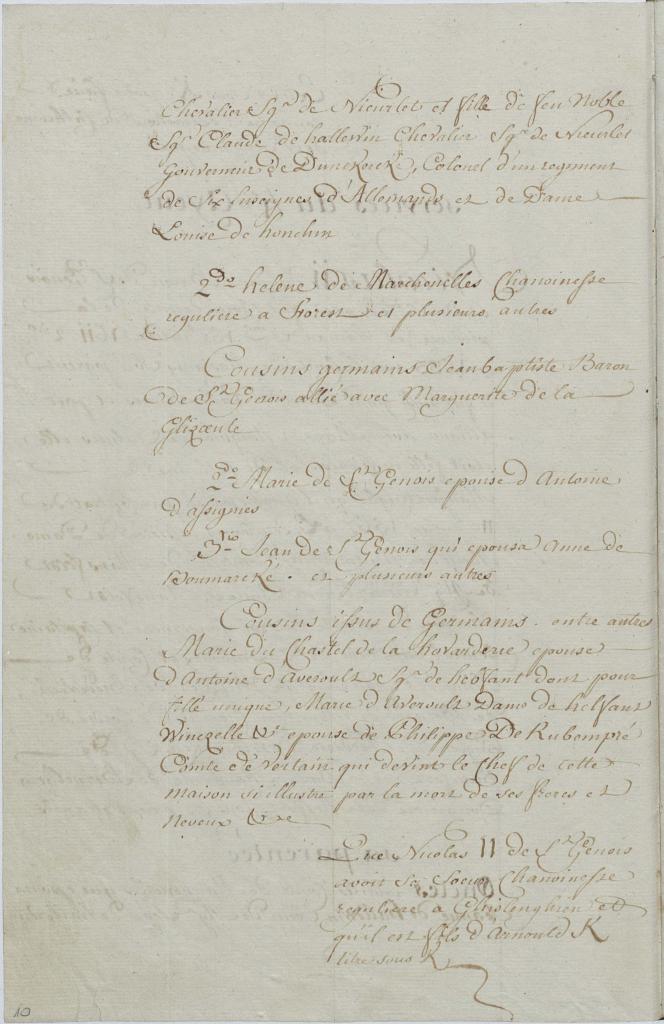 Chevalier Sgr de Nieurlet et fille de feu Noble
Sgr Claude de hallewin Chevalier Sgr de Nieurlet
Gouverneur de Dunckercke, Colonel d'un regiment
de Six Enseignes d'Allemands et de Dame
Louise de honchin
2do helene de Marchenelles Chanoinesse
reguliere a Forest et plusieurs autres
Cousins germains Jean baptiste Baron
de St Genois allié avec Marguerite de la
2do Marie de St Genois epouse d Antoine
d'assignies
3tio Jean de St Genois qui epousa Anne de
et plusieurs autres
Cousins issus de Germains. entre autres
Marie du Chastel de la hovarderie epouse
d'Antoine d'Averoult Sgr de helfaut dont pour
fille unique, Marie d'Averoult Dame de helfaut
Winezelle &a epouse de Philippe De Rubempré
Comte de Vertain qui devint le Chef de cette
maison si illustre par la mort de ses freres et
Neveux &
Que Nicolas II de St Genois
avoit sa Soeur Chanoinesse
reguliere a Ghislenghien et
qu'il est fils d'Arnould K
titre sous K
10